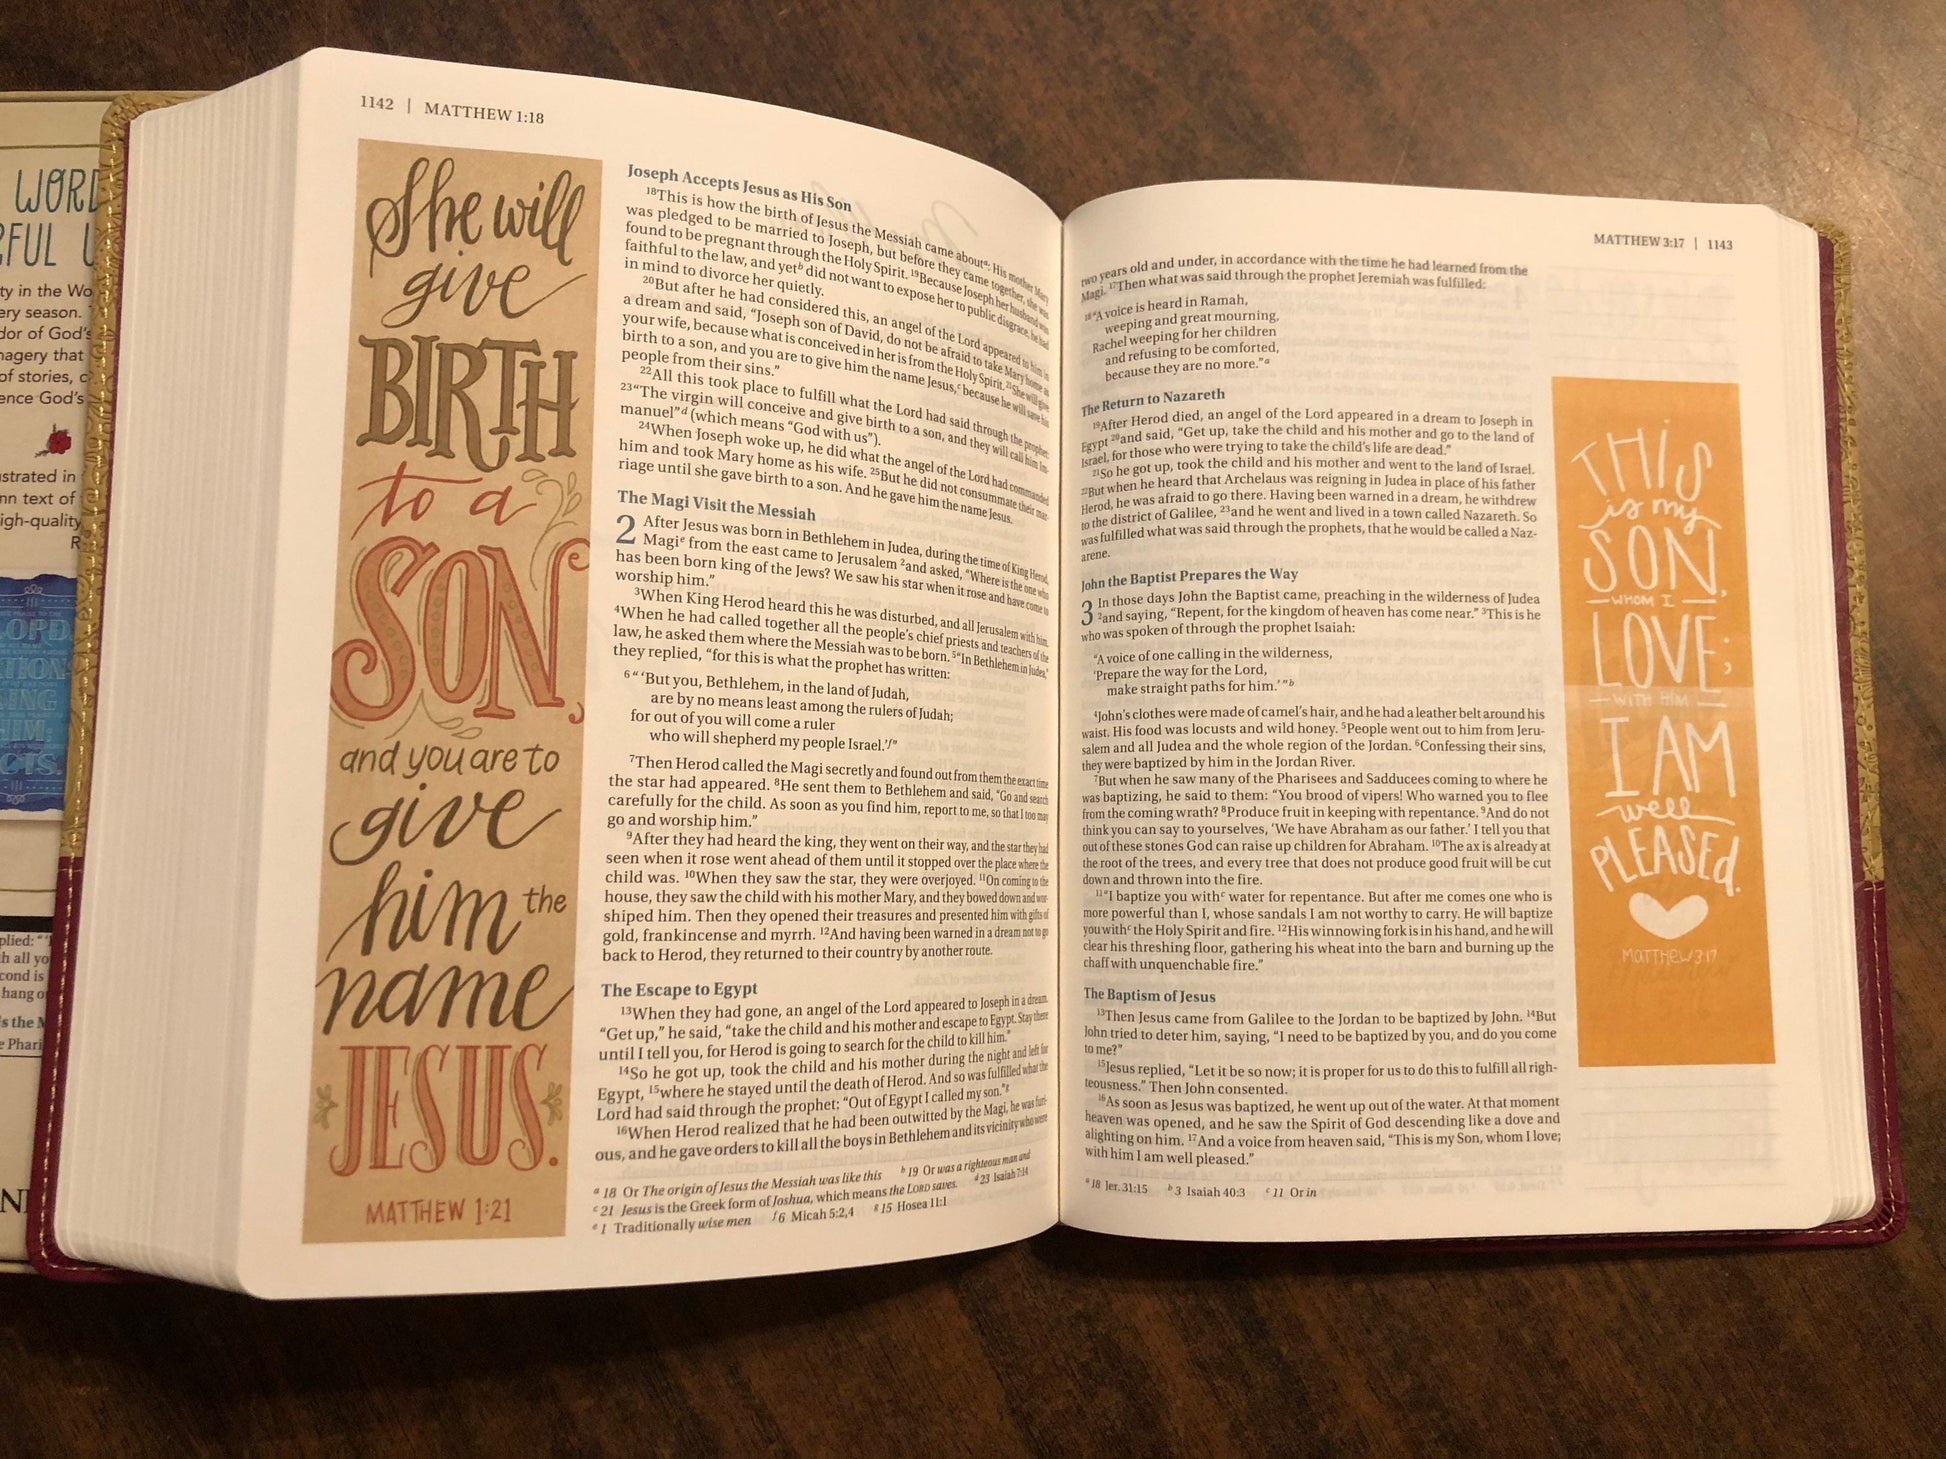 WORD
ERFUL
ty in the Wo
ery season.
dor of God's
nagery that
of stories, c
ence God's
strated in
nn text of
igh-quality
R
LORD
ATION
GING
HEM:
CTS.
plied: "'
h all yo
cond is
hang o
s the M
e Phari
1142 | MATTHEW 1:18
She will
give
BIRTH
to a
SON,
and you are to
give
him the
name
JESUS.
MATTHEW 1:21
Joseph Accepts Jesus as His Son
18This is how the birth of Jesus the Messiah came abouta: His mother Mary
was pledged to be married to Joseph, but before they came together, she was
found to be pregnant through the Holy Spirit. 19Because Joseph her husband was
faithful to the law, and yetb did not want to expose her to public disgrace, he had
in mind to divorce her quietly.
20But after he had considered this, an angel of the Lord appeared to him in
a dream and said, “Joseph son of David, do not be afraid to take Mary home as
your wife, because what is conceived in her is from the Holy Spirit. 21She will give
birth to a son, and you are to give him the name Jesus,c because he will save his
people from their sins.”
22All this took place to fulfill what the Lord had said through the prophet:
23“The virgin will conceive and give birth to a son, and they will call him Im-
manuel”d (which means “God with us”).
24When Joseph woke up, he did what the angel of the Lord had commanded
him and took Mary home as his wife. 25But he did not consummate their mar-
riage until she gave birth to a son. And he gave him the name Jesus.
The Magi Visit the Messiah
2 After Jesus was born in Bethlehem in Judea, during the time of King Herod,
Magie from the east came to Jerusalem 2and asked, “Where is the one who
has been born king of the Jews? We saw his star when it rose and have come to
worship him.”
3When King Herod heard this he was disturbed, and all Jerusalem with him.
4When he had called together all the people’s chief priests and teachers of the
law, he asked them where the Messiah was to be born. 5“In Bethlehem in Judea,”
they replied, “for this is what the prophet has written:
6“ ‘But you, Bethlehem, in the land of Judah,
are by no means least among the rulers of Judah;
for out of you will come a ruler
who will shepherd my people Israel.’f”
7Then Herod called the Magi secretly and found out from them the exact time
the star had appeared. 8He sent them to Bethlehem and said, “Go and search
carefully for the child. As soon as you find him, report to me, so that I too may
go and worship him.”
9After they had heard the king, they went on their way, and the star they had
seen when it rose went ahead of them until it stopped over the place where the
child was. 10When they saw the star, they were overjoyed. 11On coming to the
house, they saw the child with his mother Mary, and they bowed down and wor-
shiped him. Then they opened their treasures and presented him with gifts of
gold, frankincense and myrrh. 12And having been warned in a dream not to go
back to Herod, they returned to their country by another route.
The Escape to Egypt
13When they had gone, an angel of the Lord appeared to Joseph in a dream.
“Get up,” he said, “take the child and his mother and escape to Egypt. Stay there
until I tell you, for Herod is going to search for the child to kill him.”
14So he got up, took the child and his mother during the night and left for
Egypt, 15where he stayed until the death of Herod. And so was fulfilled what the
Lord had said through the prophet: “Out of Egypt I called my son.”g
16When Herod realized that he had been outwitted by the Magi, he was furi-
ous, and he gave orders to kill all the boys in Bethlehem and its vicinity who were
a 18 Or The origin of Jesus the Messiah was like this b 19 Or was a righteous man and
c 21 Jesus is the Greek form of Joshua, which means the LORD saves. d 23 Isaiah 7:14
e 1 Traditionally wise men f 6 Micah 5:2,4 g 15 Hosea 11:1
MATTHEW 3:17 | 1143
two years old and under, in accordance with the time he had learned from the
Magi. 17Then what was said through the prophet Jeremiah was fulfilled:
18“A voice is heard in Ramah,
weeping and great mourning,
Rachel weeping for her children
and refusing to be comforted,
because they are no more.”a
The Return to Nazareth
19After Herod died, an angel of the Lord appeared in a dream to Joseph in
Egypt 20and said, “Get up, take the child and his mother and go to the land of
Israel, for those who were trying to take the child’s life are dead.”
21So he got up, took the child and his mother and went to the land of Israel.
22But when he heard that Archelaus was reigning in Judea in place of his father
Herod, he was afraid to go there. Having been warned in a dream, he withdrew
to the district of Galilee, 23and he went and lived in a town called Nazareth. So
was fulfilled what was said through the prophets, that he would be called a Naz-
arene.
John the Baptist Prepares the Way
3 In those days John the Baptist came, preaching in the wilderness of Judea
2and saying, “Repent, for the kingdom of heaven has come near.” 3This is he
who was spoken of through the prophet Isaiah:
“A voice of one calling in the wilderness,
‘Prepare the way for the Lord,
make straight paths for him.’ ”b
4John’s clothes were made of camel’s hair, and he had a leather belt around his
waist. His food was locusts and wild honey. 5People went out to him from Jeru-
salem and all Judea and the whole region of the Jordan. 6Confessing their sins,
they were baptized by him in the Jordan River.
7But when he saw many of the Pharisees and Sadducees coming to where he
was baptizing, he said to them: “You brood of vipers! Who warned you to flee
from the coming wrath? 8Produce fruit in keeping with repentance. 9And do not
think you can say to yourselves, ‘We have Abraham as our father.’ I tell you that
out of these stones God can raise up children for Abraham. 10The ax is already at
the root of the trees, and every tree that does not produce good fruit will be cut
down and thrown into the fire.
11“I baptize you withc water for repentance. But after me comes one who is
more powerful than I, whose sandals I am not worthy to carry. He will baptize
you withc the Holy Spirit and fire. 12His winnowing fork is in his hand, and he will
clear his threshing floor, gathering his wheat into the barn and burning up the
chaff with unquenchable fire.”
The Baptism of Jesus
13Then Jesus came from Galilee to the Jordan to be baptized by John. 14But
John tried to deter him, saying, “I need to be baptized by you, and do you come
to me?”
15Jesus replied, “Let it be so now; it is proper for us to do this to fulfill all righ-
teousness.” Then John consented.
16As soon as Jesus was baptized, he went up out of the water. At that moment
heaven was opened, and he saw the Spirit of God descending like a dove and
alighting on him. 17And a voice from heaven said, “This is my Son, whom I love;
with him I am well pleased.”
a 18 Jer. 31:15 b 3 Isaiah 40:3 c 11 Or in
THIS
is my
SON,
WHOM I
LOVE;
WITH HIM
I AM
well
PLEASED.
MATTHEW 3:17